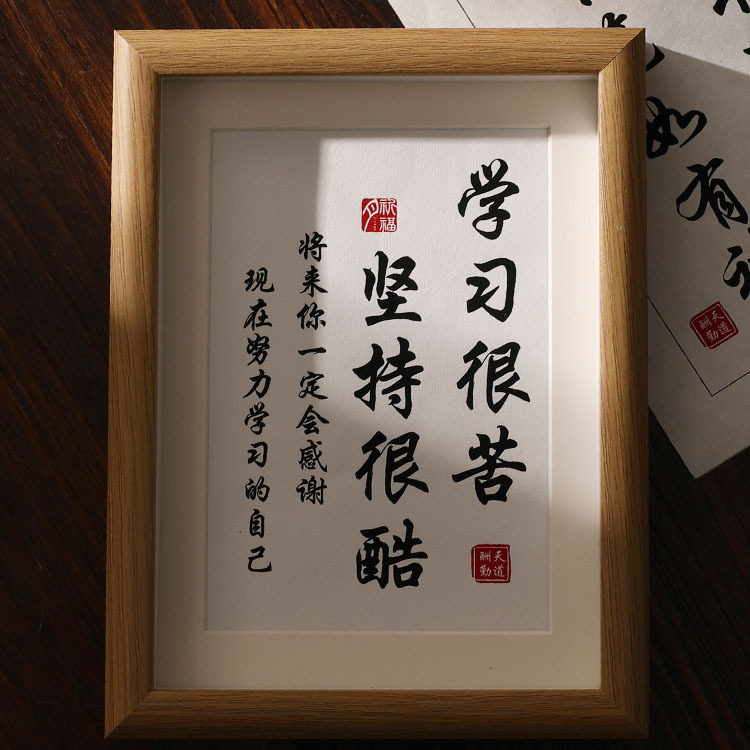 学习很苦
天道酬勤
祝福
坚持很酷
将来你一定会感谢
现在努力学习的自己
如
有
天道酬勤